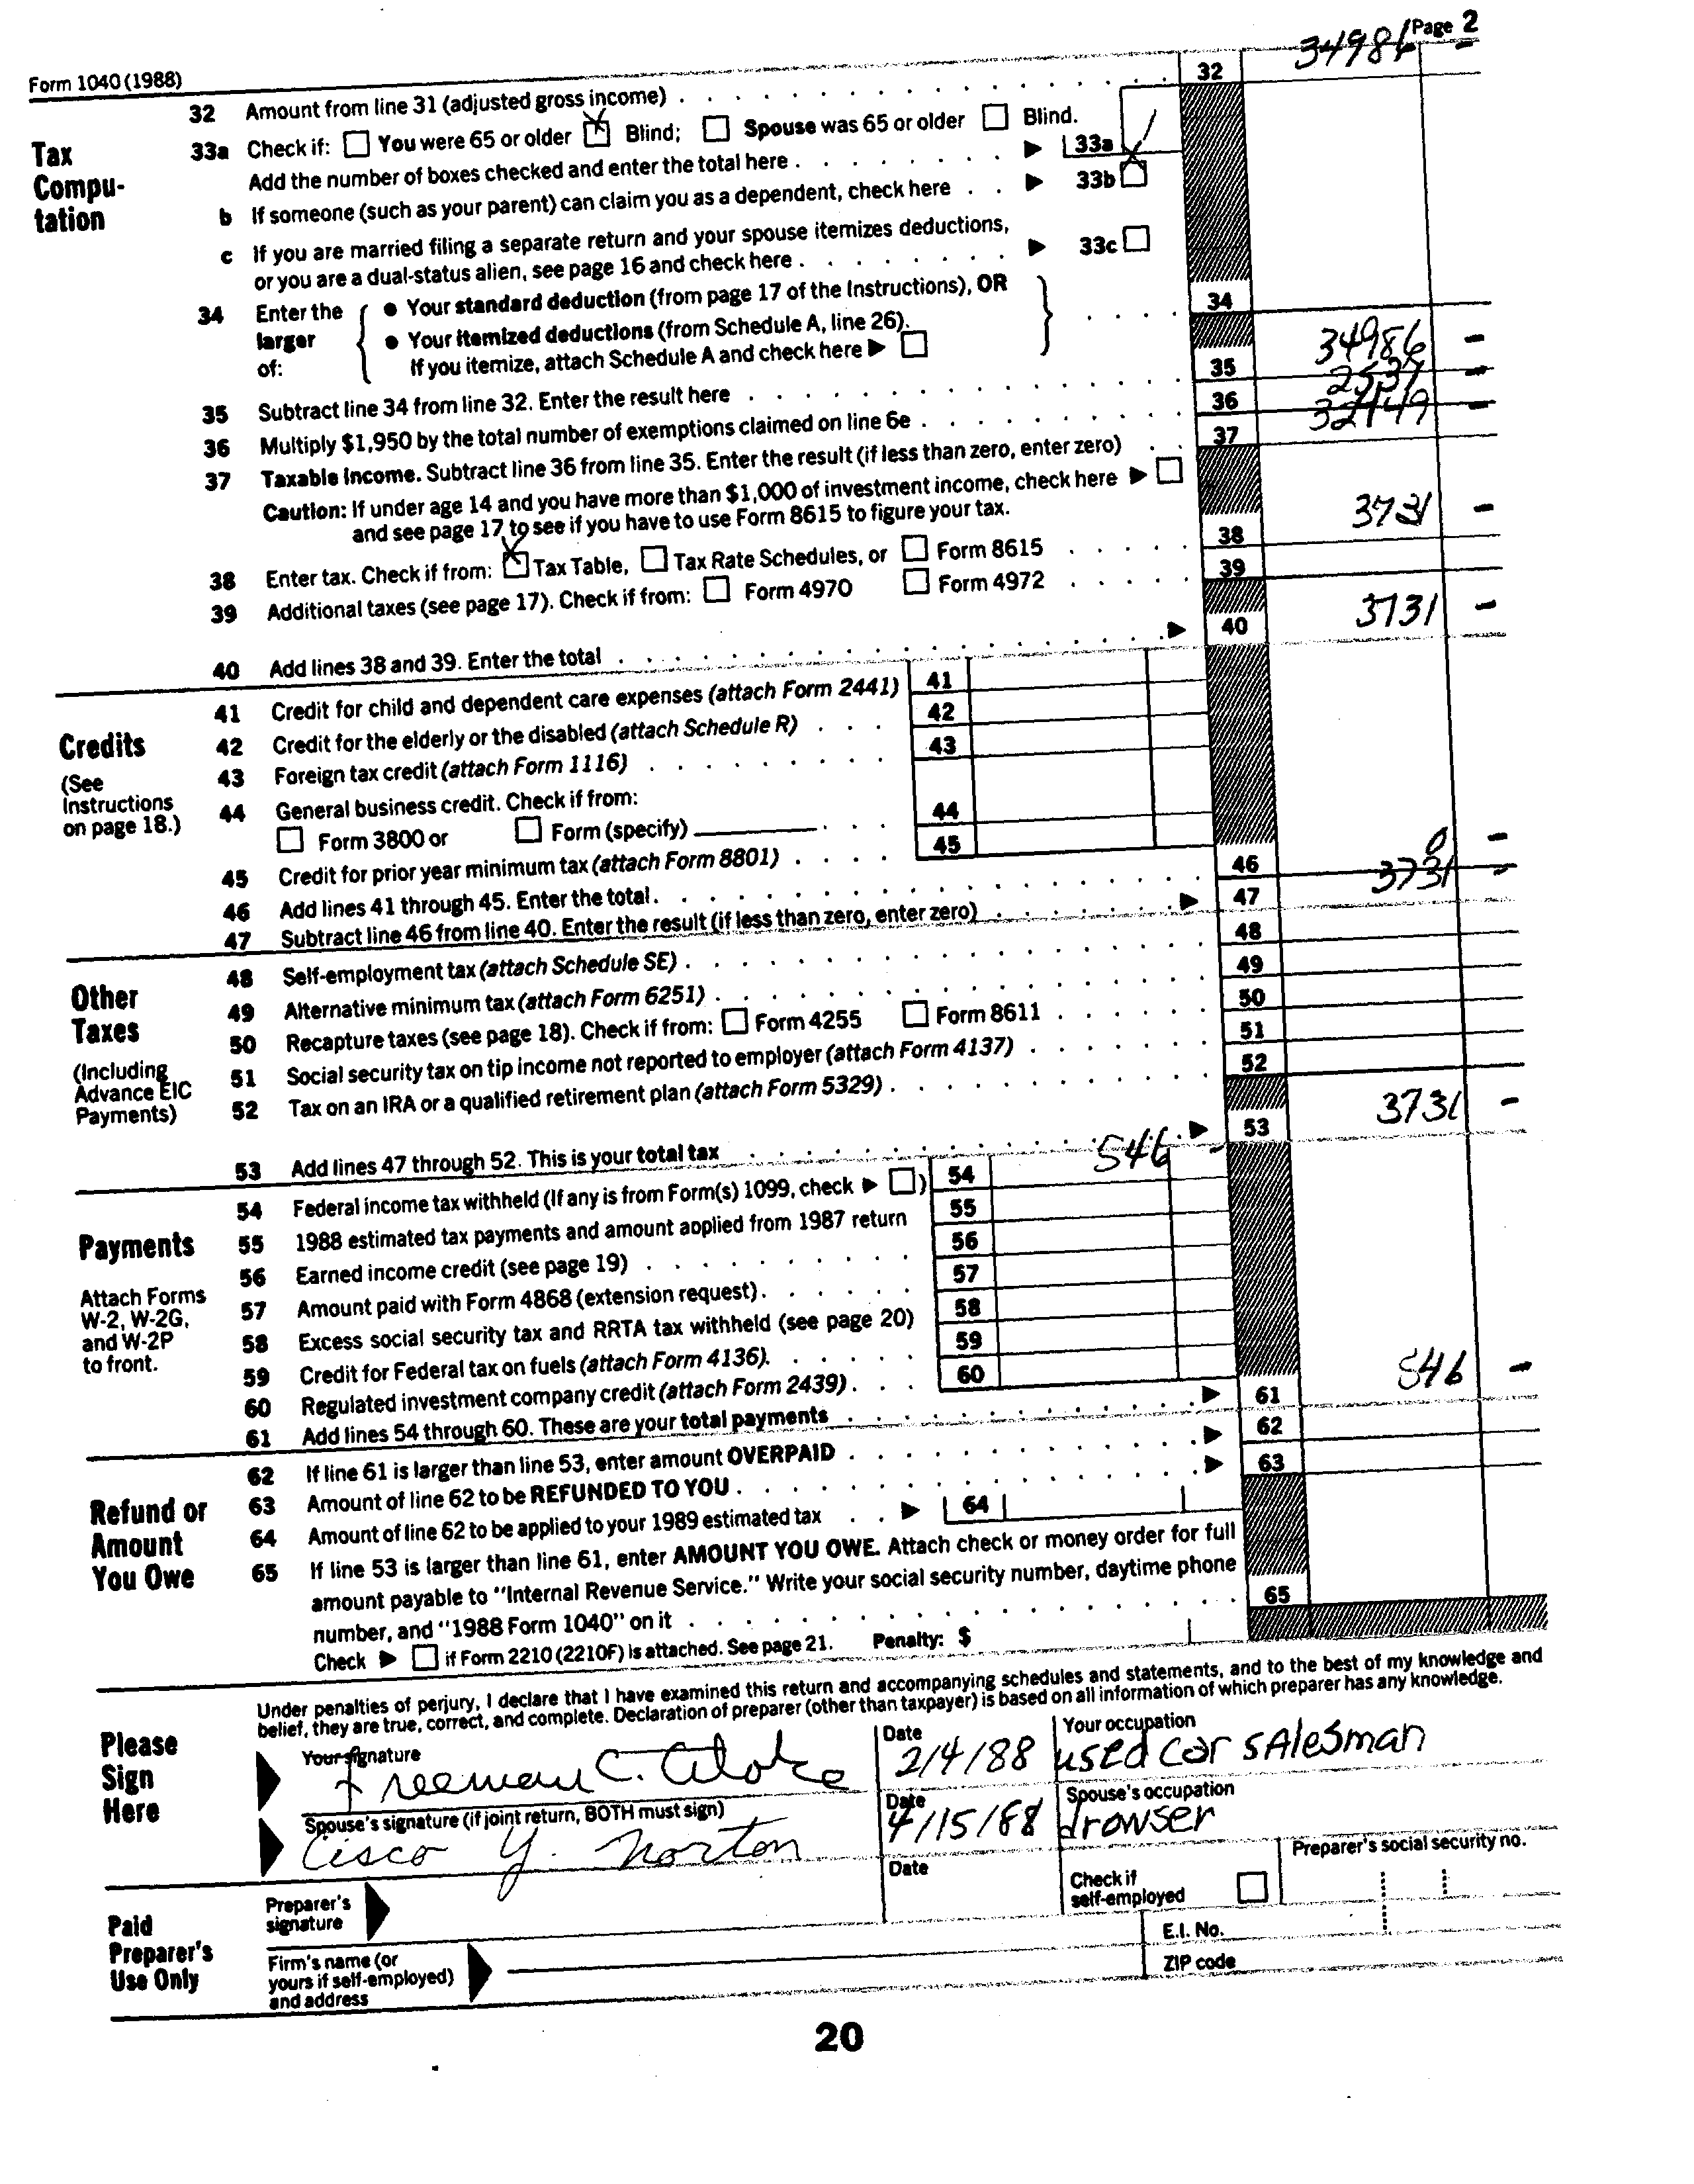 Form 1040 (1988)
Page 2
32 Amount from line 31 (adjusted gross income) 32 34986 -
Tax Compu-tation
33a Check if: You were 65 or older X Blind; Spouse was 65 or older Blind.
Add the number of boxes checked and enter the total here 33a 1
b If someone (such as your parent) can claim you as a dependent, check here 33b X
c If you are married filing a separate return and your spouse itemizes deductions,
or you are a dual-status alien, see page 16 and check here 33c
34 Enter the larger of:
• Your standard deduction (from page 17 of the Instructions), OR
• Your itemized deductions (from Schedule A, line 26).
If you itemize, attach Schedule A and check here
34
35 Subtract line 34 from line 32. Enter the result here 35 34986 -
36 Multiply $1,950 by the total number of exemptions claimed on line 6e 36 2537 -
37 Taxable income. Subtract line 36 from line 35. Enter the result (if less than zero, enter zero) 37 -
Caution: If under age 14 and you have more than $1,000 of investment income, check here
and see page 17 to see if you have to use Form 8615 to figure your tax.
38 Enter tax. Check if from: X Tax Table, Tax Rate Schedules, or Form 8615 38 3731 -
39 Additional taxes (see page 17). Check if from: Form 4970 Form 4972 39
40 Add lines 38 and 39. Enter the total 40 3731 -
Credits
(See Instructions on page 18.)
41 Credit for child and dependent care expenses (attach Form 2441) 41
42 Credit for the elderly or the disabled (attach Schedule R) 42
43 Foreign tax credit (attach Form 1116) 43
44 General business credit. Check if from:
Form 3800 or Form (specify) 44
45 Credit for prior year minimum tax (attach Form 8801) 45
46 Add lines 41 through 45. Enter the total 46 0 -
47 Subtract line 46 from line 40. Enter the result (if less than zero, enter zero) 47 3731 -
Other Taxes
(Including Advance EIC Payments)
48 Self-employment tax (attach Schedule SE) 48
49 Alternative minimum tax (attach Form 6251) 49
50 Recapture taxes (see page 18). Check if from: Form 4255 Form 8611 50
51 Social security tax on tip income not reported to employer (attach Form 4137) 51
52 Tax on an IRA or a qualified retirement plan (attach Form 5329) 52
53 Add lines 47 through 52. This is your total tax 53 3731 -
Payments
Attach Forms W-2, W-2G, and W-2P to front.
54 Federal income tax withheld (If any is from Form(s) 1099, check ) 54 546 -
55 1988 estimated tax payments and amount applied from 1987 return 55
56 Earned income credit (see page 19) 56
57 Amount paid with Form 4868 (extension request) 57
58 Excess social security tax and RRTA tax withheld (see page 20) 58
59 Credit for Federal tax on fuels (attach Form 4136) 59
60 Regulated investment company credit (attach Form 2439) 60
61 Add lines 54 through 60. These are your total payments 61 546 -
Refund or Amount You Owe
62 If line 61 is larger than line 53, enter amount OVERPAID 62
63 Amount of line 62 to be REFUNDED TO YOU 63
64 Amount of line 62 to be applied to your 1989 estimated tax 64
65 If line 53 is larger than line 61, enter AMOUNT YOU OWE. Attach check or money order for full
amount payable to "Internal Revenue Service." Write your social security number, daytime phone
number, and "1988 Form 1040" on it 65
Check if Form 2210 (2210F) is attached. See page 21. Penalty: $
Please Sign Here
Under penalties of perjury, I declare that I have examined this return and accompanying schedules and statements, and to the best of my knowledge and
belief, they are true, correct, and complete. Declaration of preparer (other than taxpayer) is based on all information of which preparer has any knowledge.
Your signature Date Your occupation
Freeman C. 2/4/88 used car salesman
Spouse's signature (if joint return, BOTH must sign) Date Spouse's occupation
Cisco Y. Norton 4/15/88 drowser
Paid Preparer's Use Only
Preparer's signature Date Check if self-employed Preparer's social security no.
Firm's name (or yours if self-employed) and address
E.I. No.
ZIP code
20